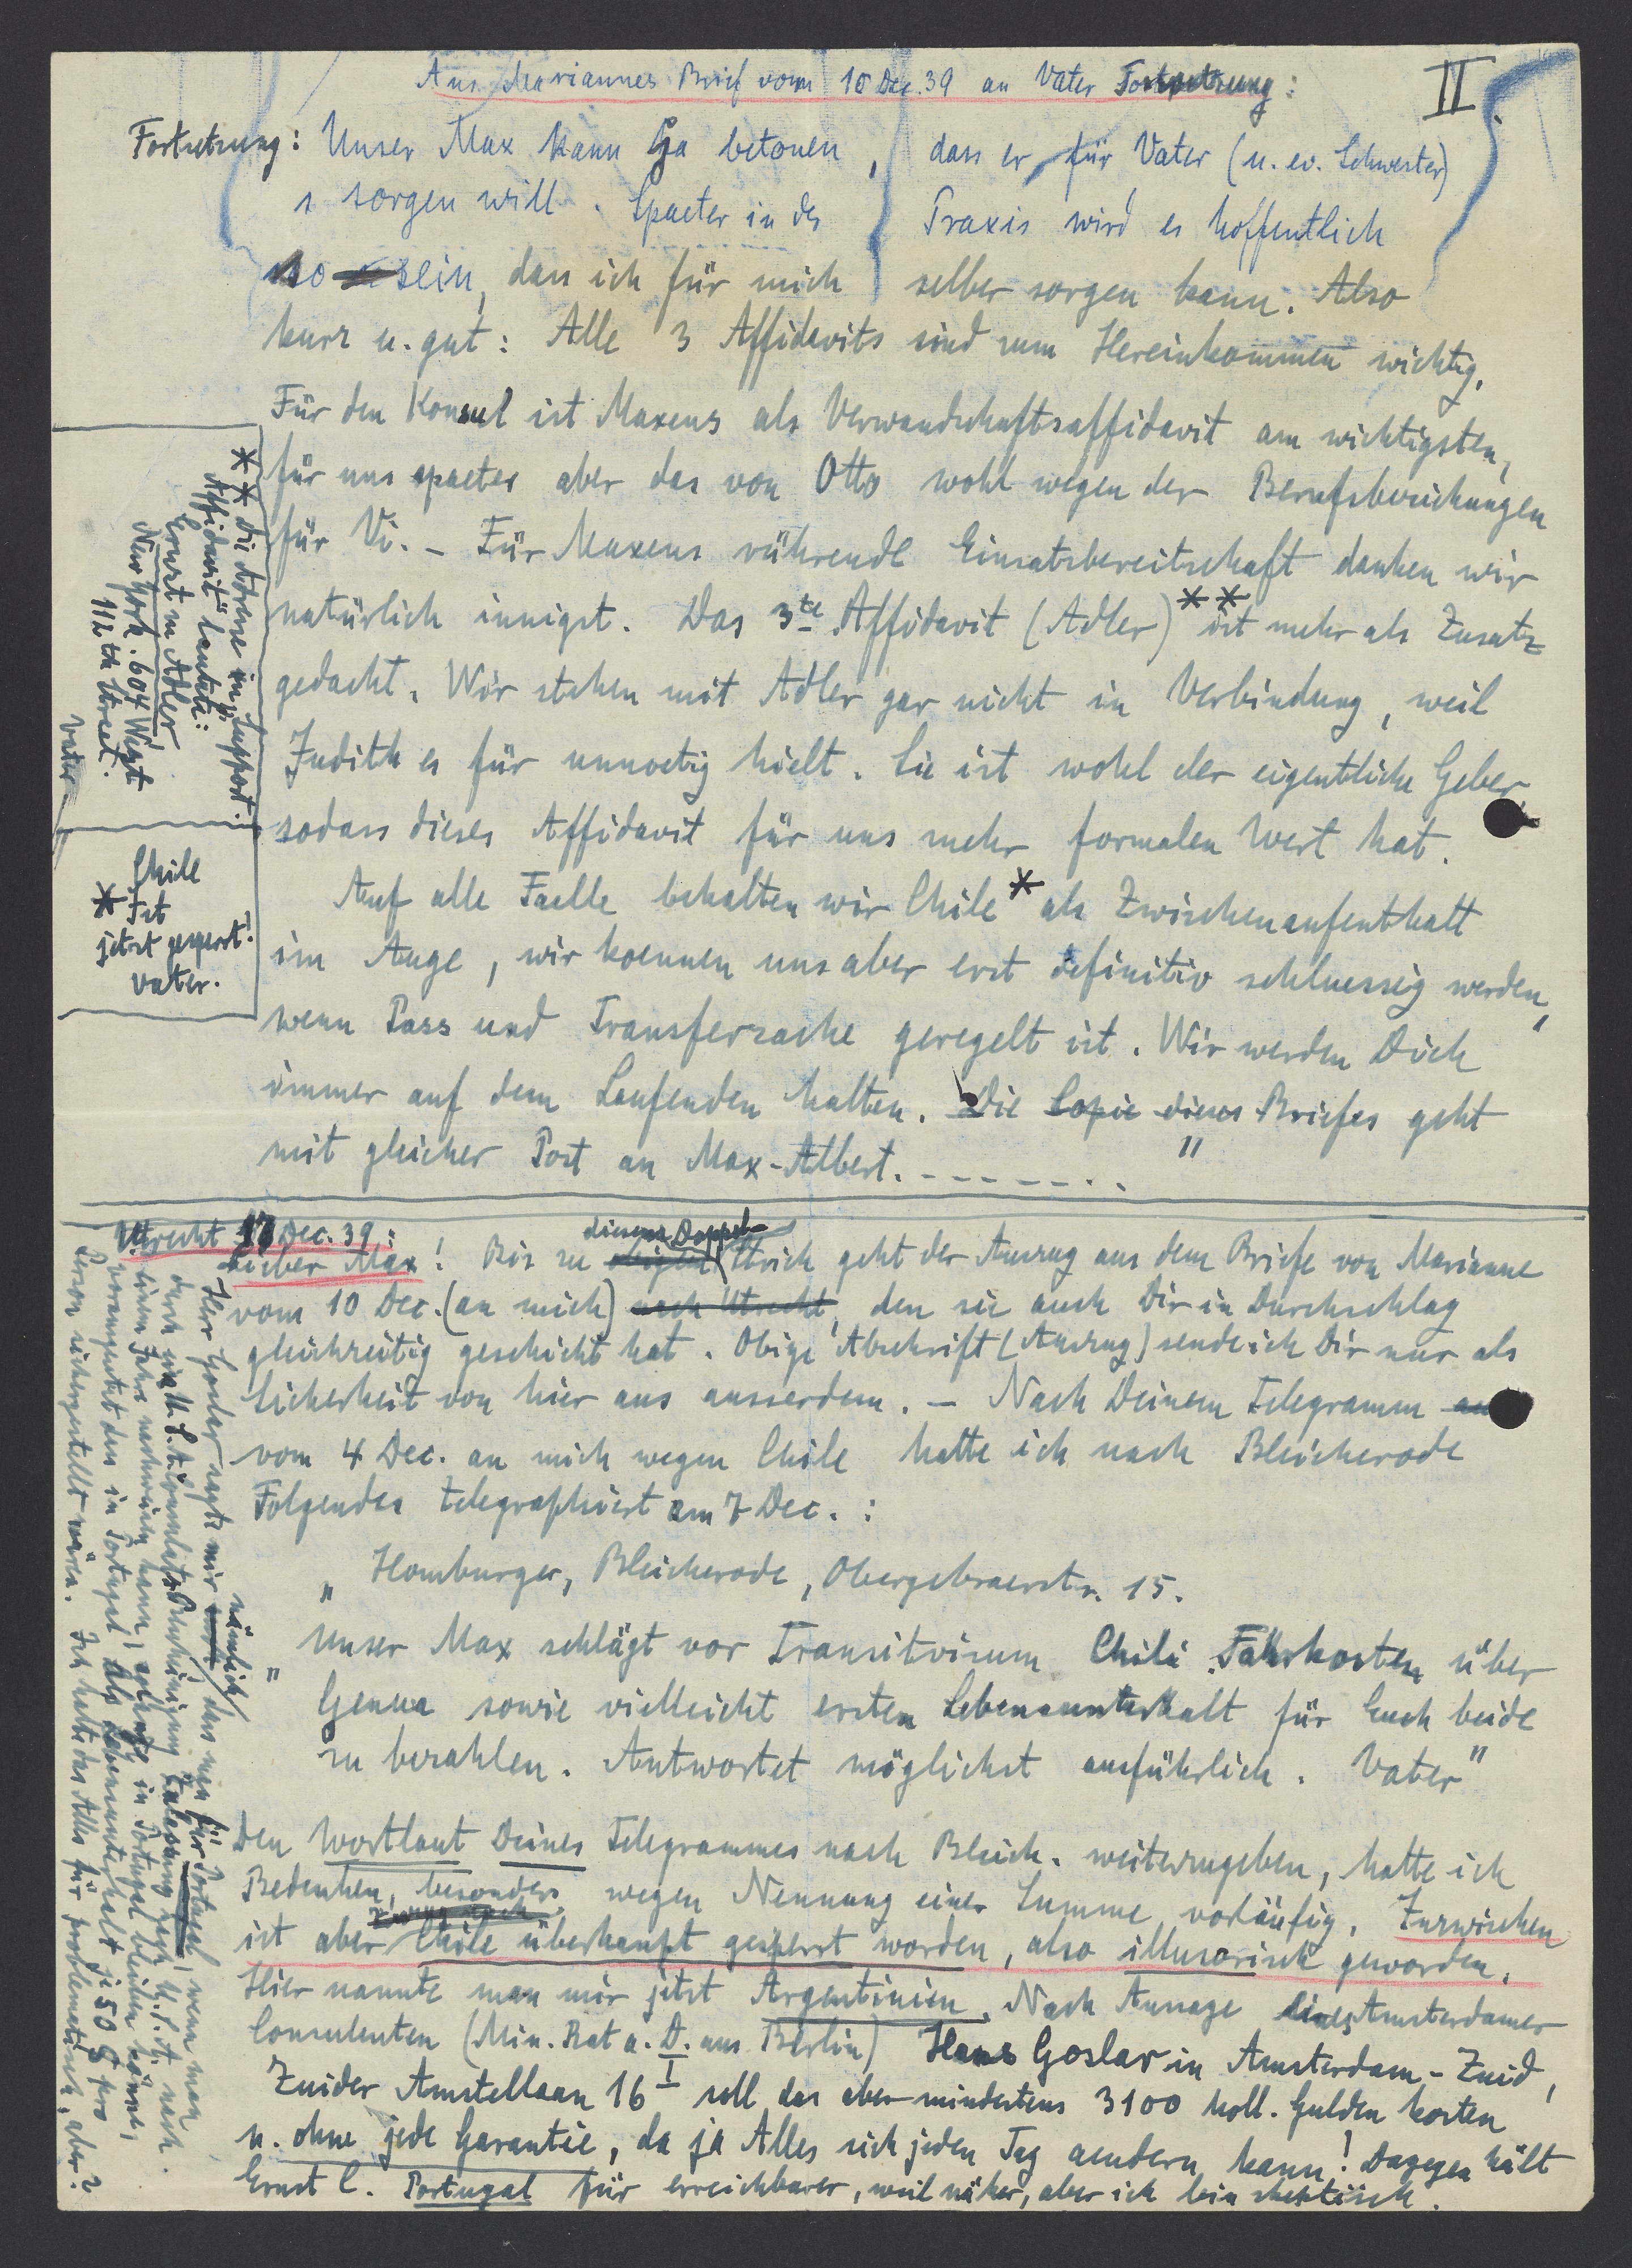 Aus Mariannes Brief vom 10 Dec. 39 an Vater Fortsetzung:
II.
Fortsetzung: Unser Max kann ja betonen, dass er für Vater (u. ev. Schwester)
sorgen will. Spaeter in der Praxis wird es hoffentlich
so sein, dass ich für mich selber sorgen kann. Also
kurz u. gut: Alle 3 Affidavits sind zum Hereinkommen wichtig,
Für den Konsul ist Maxens als Verwandschaftsaffidavit am wichtigsten,
für uns spaeter aber das von Otto wohl wegen der Berufsbeziehungen
für Vi. – Für Maxens rührende Einsatzbereitschaft danken wir
natürlich innigst. Das 3te Affidavit (Adler)** ist mehr als Zusatz
gedacht. Wir stehen mit Adler gar nicht in Verbindung, weil
Judith es für unnoetig hielt. Sie ist wohl der eigentliche Geber,
sodass dieses Affidavit für uns mehr formalen Wert hat.
Auf alle Faelle behalten wir Chile* als Zwischenaufenthalt
im Auge, wir koennen uns aber erst definitiv schluessig werden,
wenn Pass und Transfersache geregelt ist. Wir werden Dich
immer auf dem Laufenden halten. Die Copie dieses Briefes geht
mit gleicher Post an Max-Albert. - - - - - - - "
** die Adresse im "Support
Affidavit" lautete:
Ernst M Adler
New York. 604 West
112th Street.
Vater.
Chile
* ist
jetzt gesperrt!
Vater.
Utrecht 17 Dec. 39:
Lieber Max! Bis zu diesem Doppel-Strich geht der Auszug aus dem Briefe von Marianne
vom 10 Dec. (an mich) nach Utrecht, den sie auch Dir in Durchschlag
gleichzeitig geschickt hat. Obige Abschrift (Auszug) sende ich Dir nur als
Sicherheit von hier aus ausserdem. – Nach Deinem Telegramm
vom 4 Dec. an mich wegen Chile hatte ich nach Bleicherode
Folgendes telegraphiert am 7 Dec. :
„ Homburger, Bleicherode, Obergebraerstr. 15.
„ Unser Max schlägt vor Transitvisum Chili Fahrkosten über
Genua sowie vielleicht ersten Lebensunterhalt für Euch beide
zu bezahlen. Antwortet möglichst ausführlich. Vater"
Den Wortlaut Deines Telegrammes nach Bleich. weiterzugeben, hatte ich
Bedenken, besonders wegen Nennung einer Summe vorläufig. Inzwischen
ist aber Chile überhaupt gesperrt worden, also illusorisch geworden.
Hier nannte man mir jetzt Argentinien. Nach Aussage eines Amsterdamer
Consulenten (Min. Rat a. D. aus Berlin) Hans Goslar in Amsterdam-Zuid,
Zuider Amstellaan 16 I soll das aber mindestens 3100 holl. Gulden kosten
u. ohne jede Garantie, da ja Alles sich jeden Tag aendern kann! Dagegen hält
Ernst C. Portugal für erreichbarer, weil näher, aber ich bin skeptisch.
Herr Goslar sagte mir nämlich, dass man für Portugal, wenn man
durch ein U.S.A. Consulats-Bescheinigung Zulassung nach U.S.A. nach
einem Jahre nachweisen kann, solange in Portugal bleiben könne,
vorausgesetzt dass in Portugal als Lebensunterhalt je 50 $ pro
Person sichergestellt wären. Ich halte das Alles für problematisch, aber?